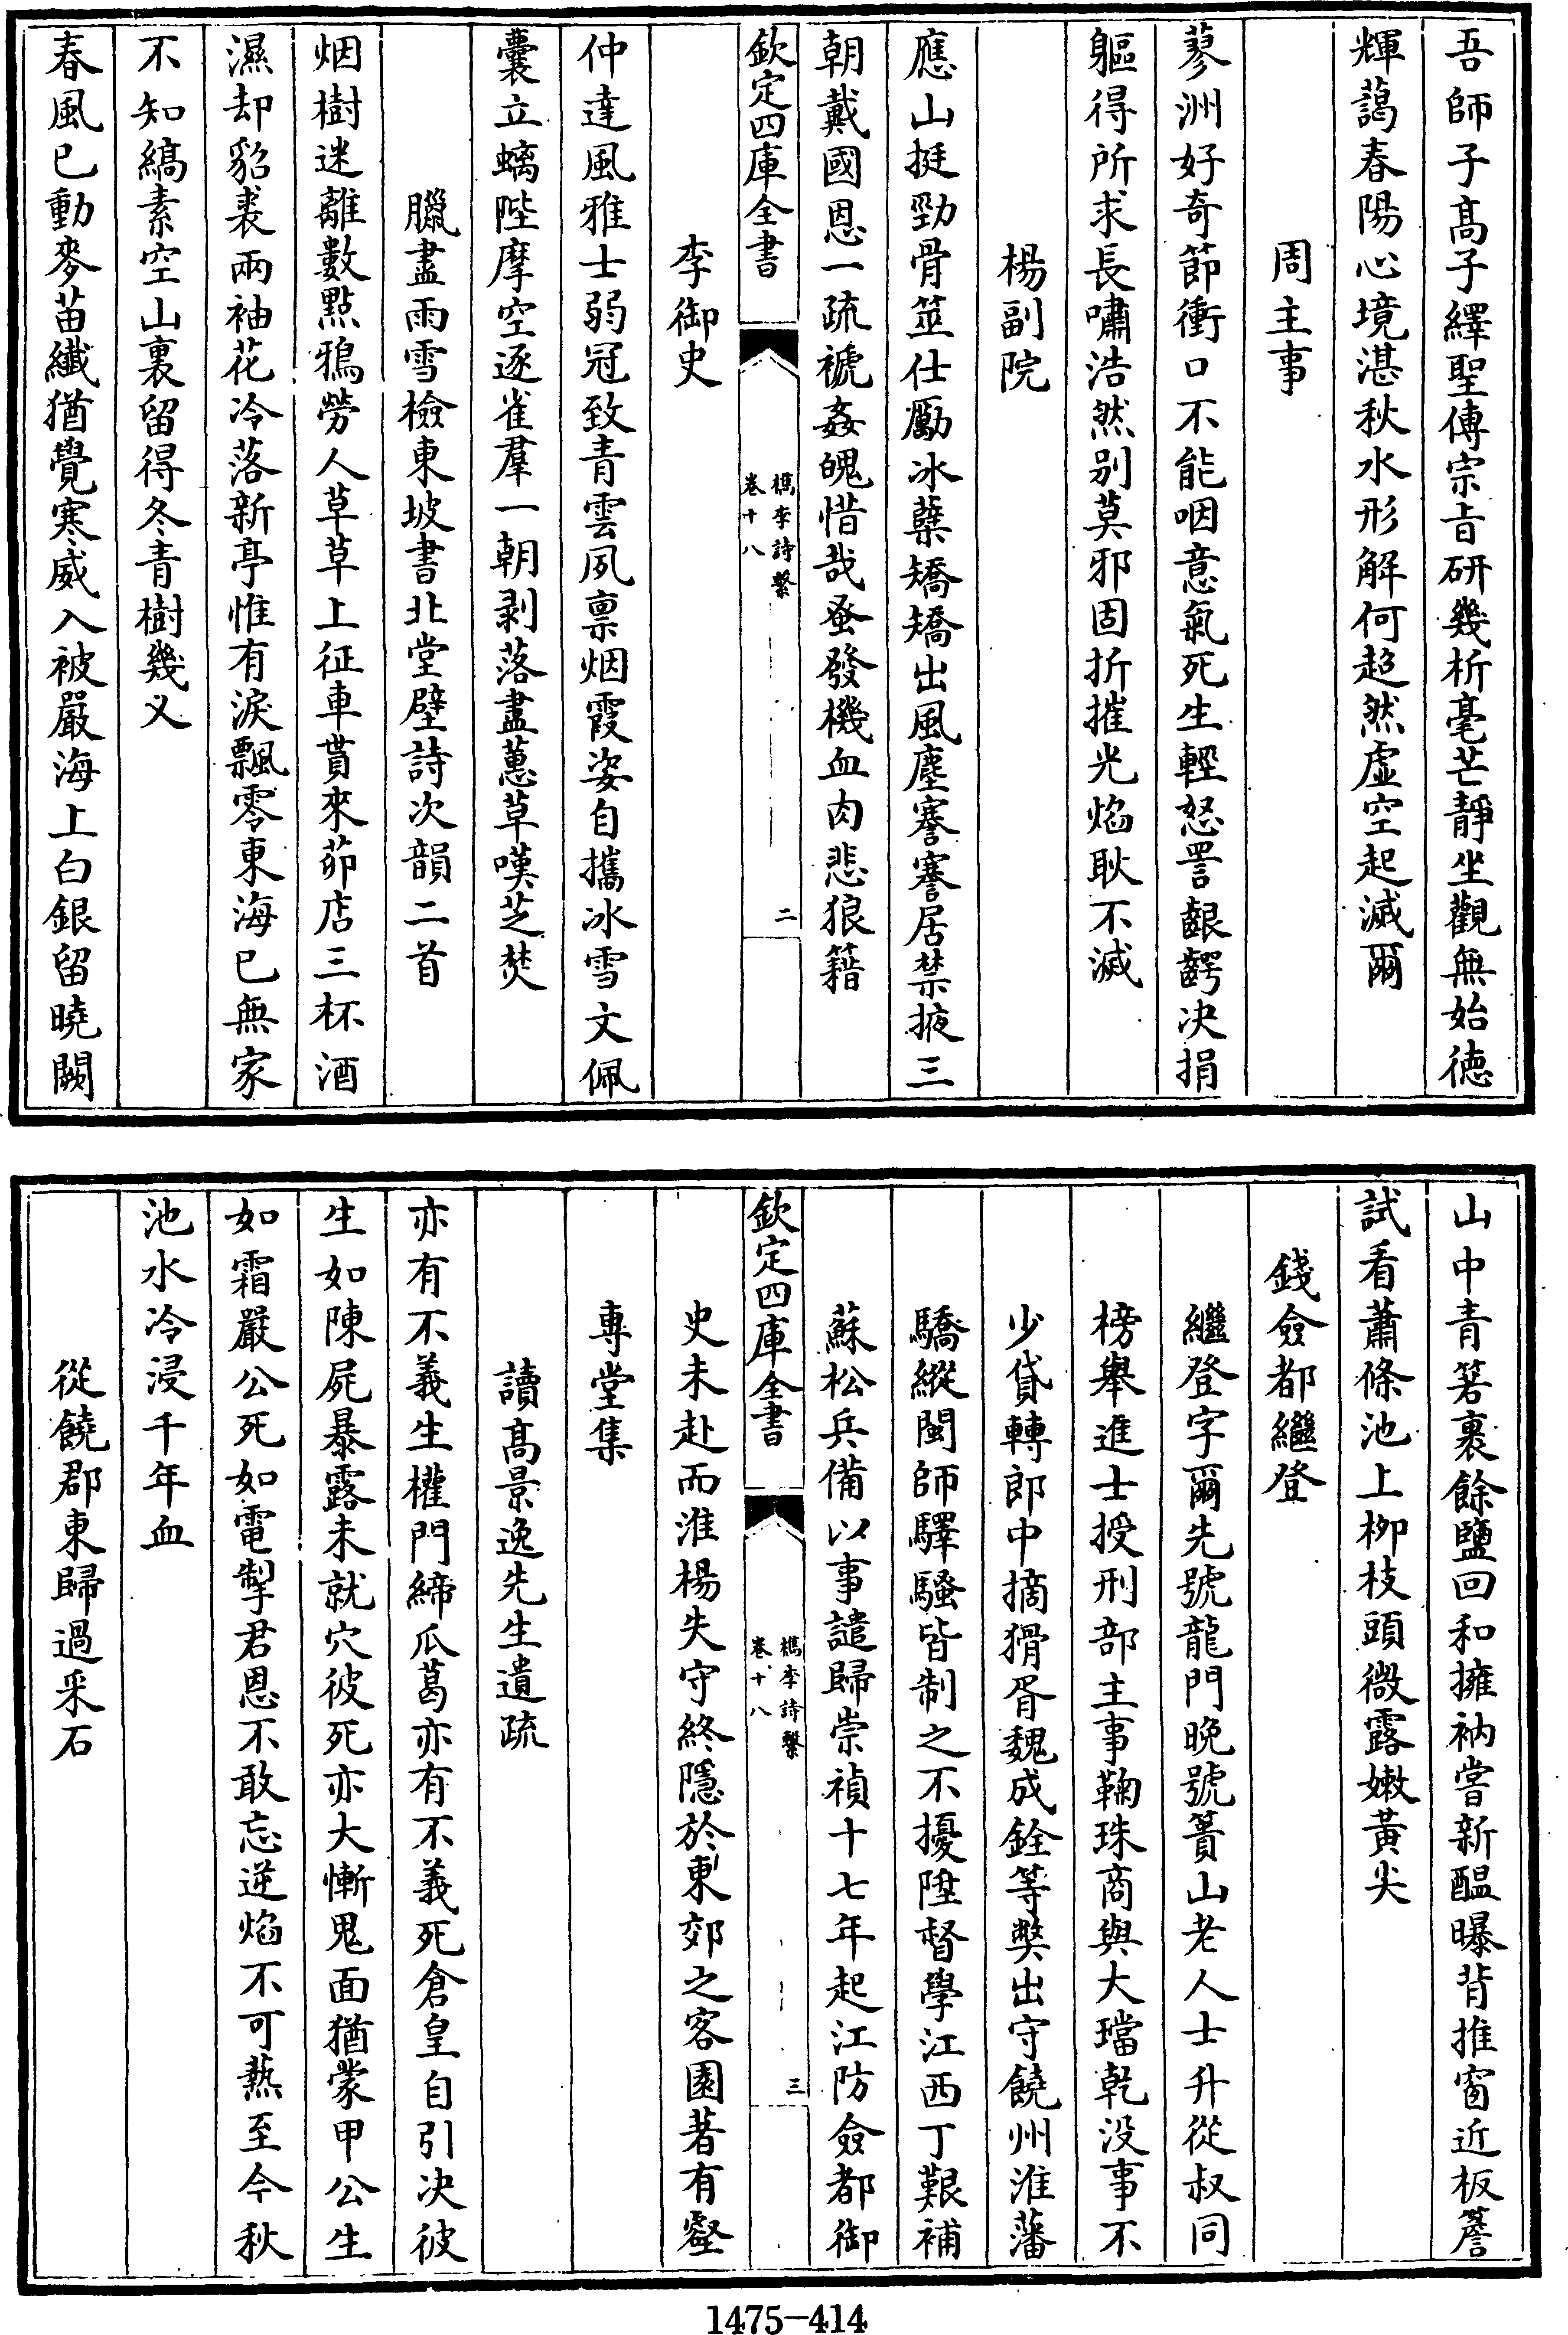 吾師子高子繹聖傳宗㫖研幾析毫芒靜坐觀無始徳
輝藹春陽心境湛秋水形解何超然虛空起滅爾
周主事
蓼洲好奇節衝口不能咽意氣死生輕怒詈齦齶决捐
軀得所求長嘯浩然别莫邪固折摧光焰耿不滅
楊副院
應山挺勁骨筮仕勵冰蘗矯矯出風塵謇謇居禁掖三
朝戴國恩一疏褫姦魄惜哉蚤發機血肉悲狼籍
欽定四庫全書
檇李詩繫
卷十八
二
李御史
仲達風雅士弱冠致青雲夙禀烟霞姿自攜冰雪文佩
囊立螭陛摩空逐雀羣一朝剥落盡蕙草嘆芝焚
臘盡雨雪檢東坡書北堂壁詩次韻二首
烟樹迷離數點鴉勞人草草上征車貰來茆店三杯酒
濕却貂裘兩袖花冷落新亭惟有淚飄零東海已無家
不知縞素空山裏留得冬青樹幾义
春風已動麥苗纎猶覺寒威入被嚴海上白銀留曉闕
山中青箬裹餘鹽回和擁衲嘗新醖曝背推窗近板簷
試看蕭條池上栁枝頭微露嫩黄尖
錢僉都繼登
繼登字爾先號龍門晩號簣山老人士升從叔同
榜舉進士授刑部主事鞠珠商與大璫乾没事不
少貸轉郎中摘猾胥魏成銓等獘出守饒州淮藩
驕縱閩師驛騷皆制之不擾陞督學江西丁艱補
蘇松兵備以事譴歸崇禎十七年起江防僉都御
欽定四庫全書
檇李詩繫
卷十八
三
史未赴而淮楊失守終隱於東郊之客園著有壑
專堂集
讀髙景逸先生遺疏
亦有不義生權門締瓜葛亦有不義死倉皇自引决彼
生如陳屍暴露未就穴彼死亦大慚鬼面猶蒙甲公生
如霜嚴公死如電掣君恩不敢忘逆焰不可爇至今秋
池水冷浸千年血
從饒郡東歸過采石
1475-414